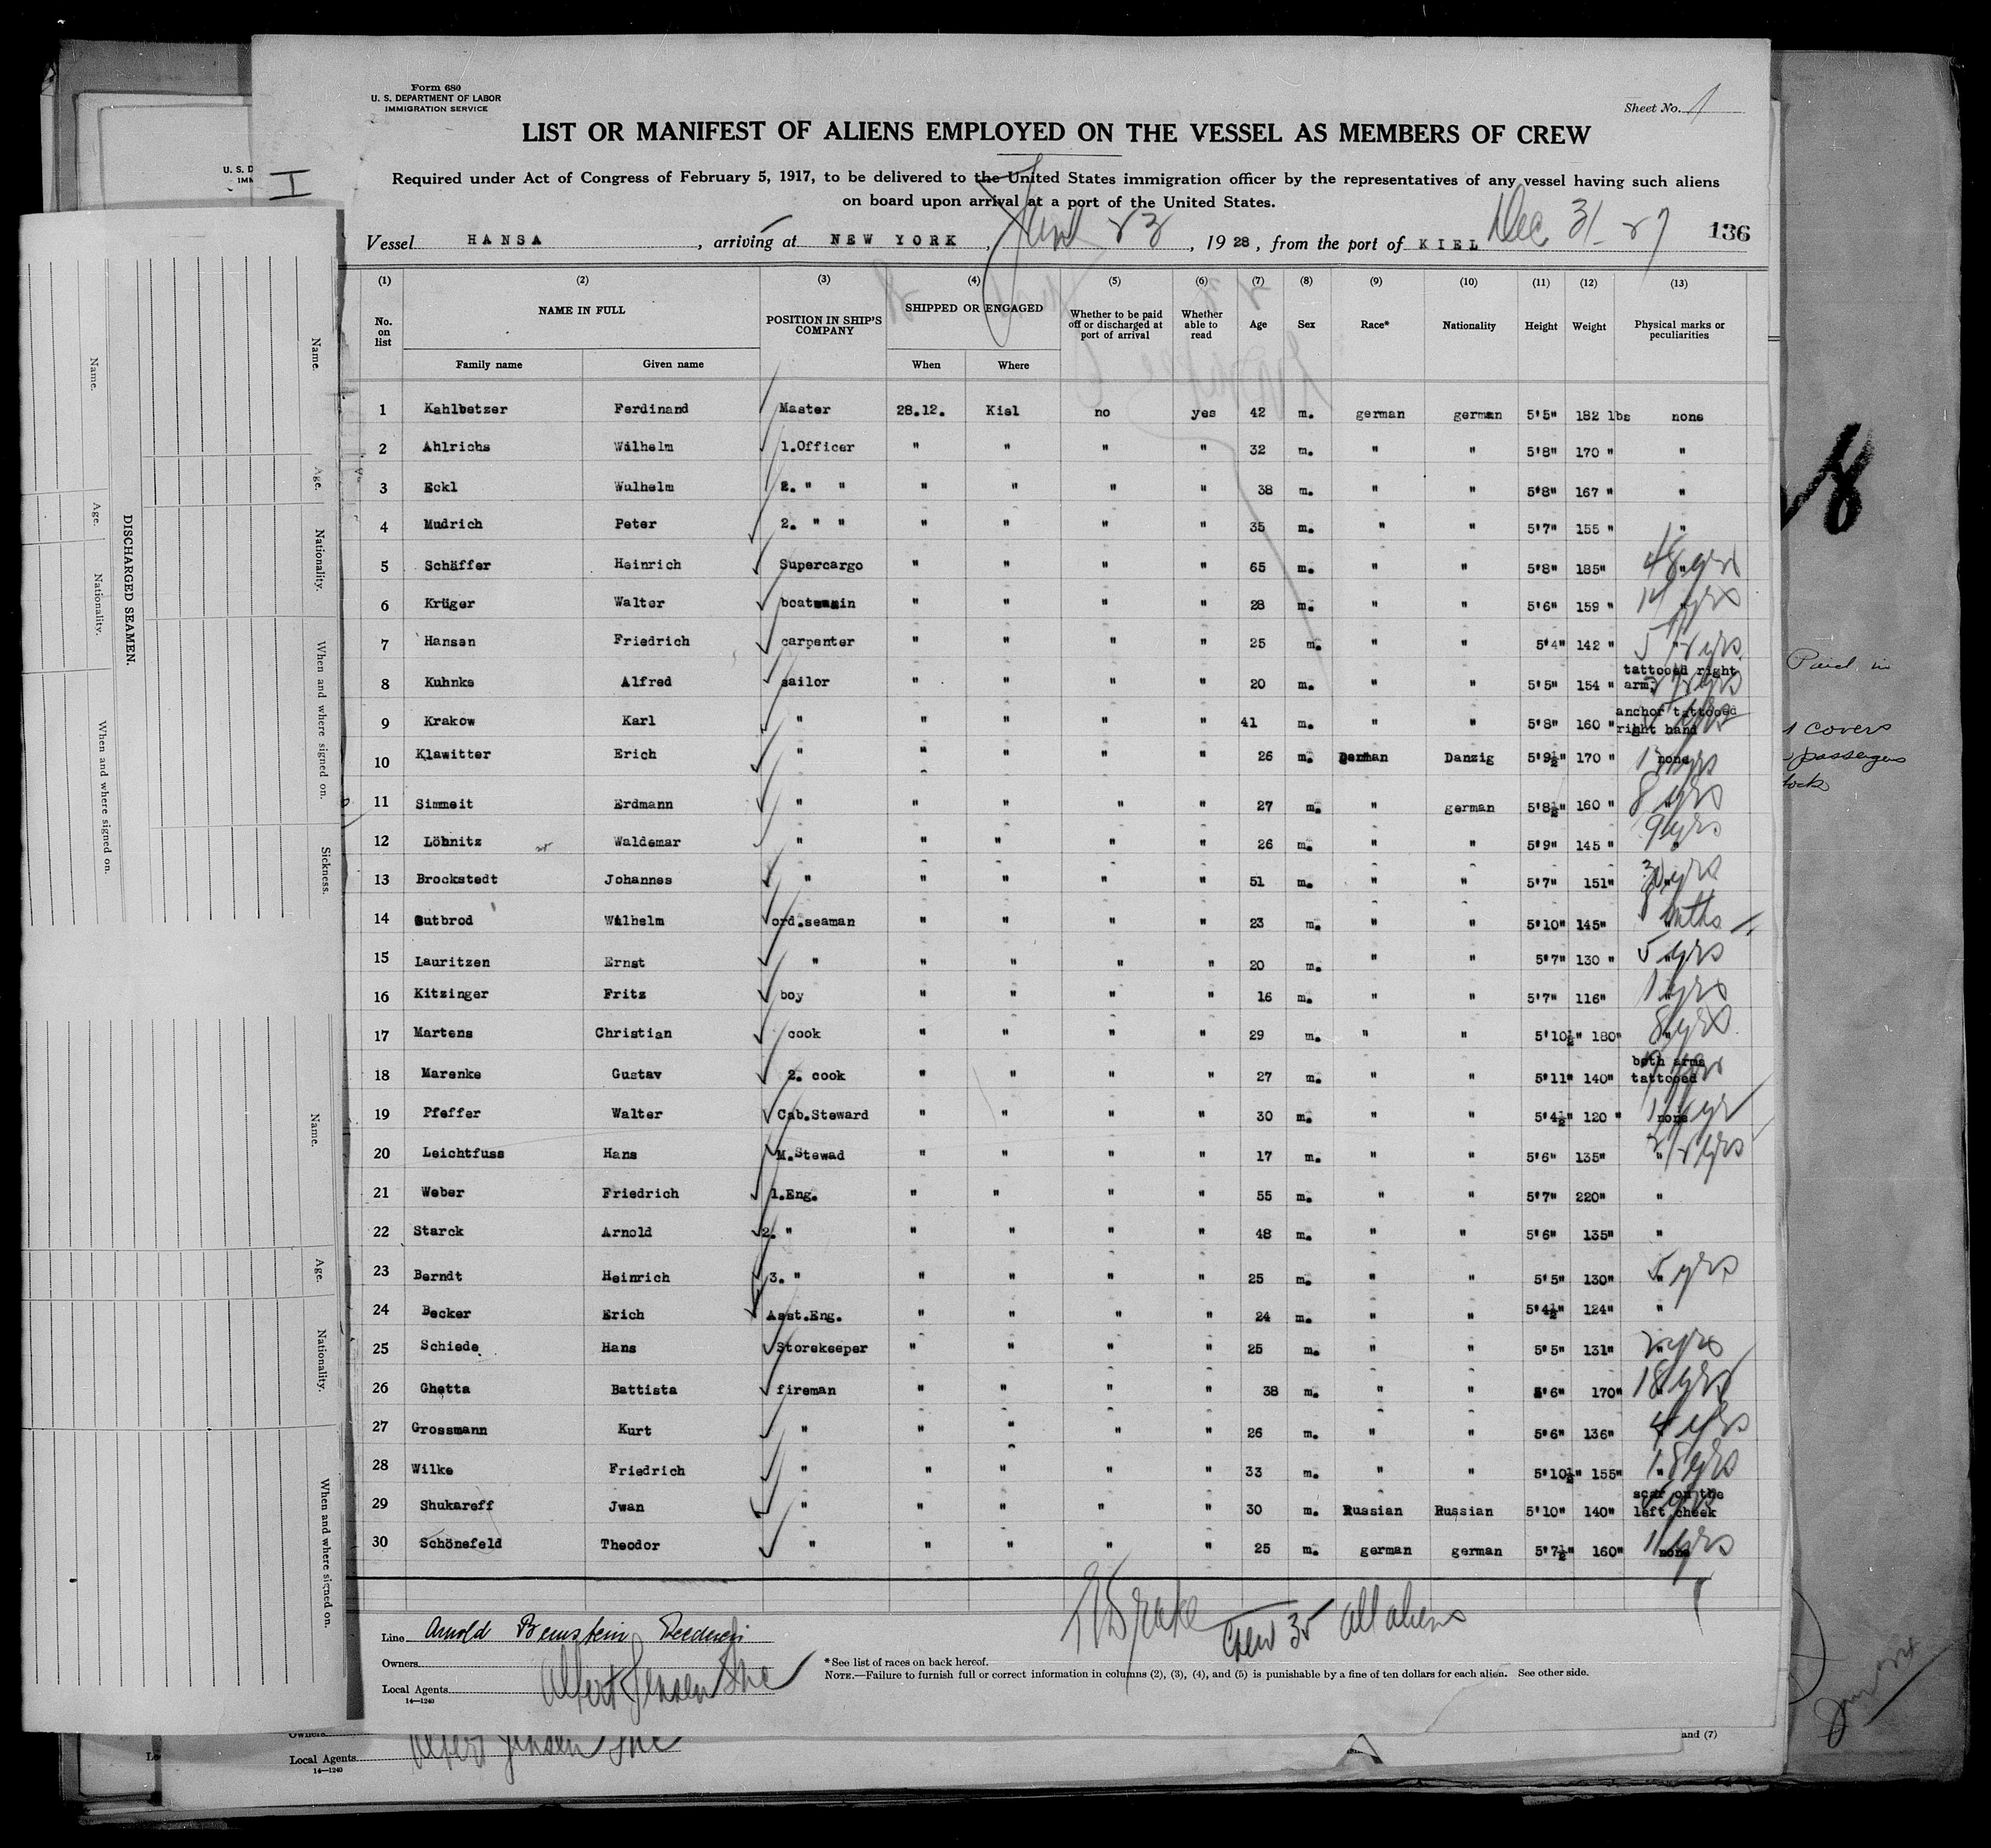 Form 680
U. S. DEPARTMENT OF LABOR
IMMIGRATION SERVICE
Sheet No. 1
LIST OR MANIFEST OF ALIENS EMPLOYED ON THE VESSEL AS MEMBERS OF CREW
Required under Act of Congress of February 5, 1917, to be delivered to the United States immigration officer by the representatives of any vessel having such aliens
on board upon arrival at a port of the United States.
Vessel HANSA, arriving at NEW YORK, 23, 1928, from the port of KIEL Dec 31-27 136
(1) (2) (3) (4) (5) (6) (7) (8) (9) (10) (11) (12) (13)
No. on list NAME IN FULL POSITION IN SHIP'S COMPANY SHIPPED OR ENGAGED Whether to be paid off or discharged at port of arrival Whether able to read Age Sex Race* Nationality Height Weight Physical marks or peculiarities
Family name Given name When Where
1 Kahlbetzer Ferdinand Master 28.12. Kiel no yes 42 m. german german 5'5" 182 lbs none
2 Ahlrichs Wilhelm 1.Officer " " " " 32 m. " " 5'8" 170 " "
3 Eckl Wulhelm 2. " " " " " " 38 m. " " 5'8" 167 " "
4 Mudrich Peter 2. " " " " " " 35 m. " " 5'7" 155 " "
5 Schäffer Heinrich Supercargo " " " " 65 m. " " 5'8" 185" " 48 yrs
6 Krüger Walter " " " " 28 m. " " 5'6" 159 " " yrs
7 Hansen Friedrich carpenter " " " " 25 m. " " 5'4" 142 " " yrs
8 Kuhnke Alfred sailor " " " " 20 m. " " 5'5" 154 " tattooed right arm
9 Krakow Karl " " " " " 41 m. " " 5'8" 160 " anchor tattooed right hand
10 Klawitter Erich " " " " " 26 m. German Danzig 5'9½" 170 " none yrs
11 Simmeit Erdmann " " " " " 27 m. " german 5'8½" 160 " " 8 yrs
12 Löhnitz Waldemar " " " " " 26 m. " " 5'9" 145 " 9 yrs
13 Brockstedt Johannes " " " " " 51 m. " " 5'7" 151" " 30 yrs
14 Gutbrod Wilhelm ord.seaman " " " " 23 m. " " 5'10" 145" " 8 mths
15 Lauritzen Ernst " " " " " 20 m. " " 5'7" 130 " " 5 yrs
16 Kitzinger Fritz boy " " " " 16 m. " " 5'7" 116" " 1 yrs
17 Martens Christian cook " " " " 29 m. " " 5'10½" 180" " 8 yrs
18 Marenke Gustav 2. cook " " " " 27 m. " " 5'11" 140" both arms tattooed
19 Pfeffer Walter Cab.Steward " " " " 30 m. " " 5'4½" 120 " none yr
20 Leichtfuss Hans M.Stewad " " " " 17 m. " " 5'6" 135" " yrs
21 Weber Friedrich 1.Eng. " " " " 55 m. " " 5'7" 220" "
22 Starck Arnold 2. " " " " " 48 m. " " 5'6" 135" "
23 Berndt Heinrich 3. " " " " " 25 m. " " 5'5" 130" " 5 yrs
24 Becker Erich Asst.Eng. " " " " 24 m. " " 5'4½" 124" "
25 Schiede Hans Storekeeper " " " " 25 m. " " 5'5" 131" " 2 yrs
26 Ghetta Battista fireman " " " " 38 m. " " 5'6" 170" " 18 yrs
27 Grossmann Kurt " " " " " 26 m. " " 5'6" 136" " 4 yrs
28 Wilke Friedrich " " " " " 33 m. " " 5'10½" 155" " 18 yrs
29 Shukareff Jwan " " " " " 30 m. Russian Russian 5'10" 140" scar on the left cheek
30 Schönefeld Theodor " " " " " 25 m. german german 5'7½" 160" none 11 yrs
Crew 35 all aliens
Line Arnold Bernstein Reederei
Owners
Local Agents Albert Jensen Inc
14—1240
*See list of races on back hereof.
NOTE.—Failure to furnish full or correct information in columns (2), (3), (4), and (5) is punishable by a fine of ten dollars for each alien. See other side.
DISCHARGED SEAMEN.
Name. Age. Nationality. When and where signed on. Sickness.
Name. Age. Nationality. When and where signed on.
Name. Age. Nationality. When and where signed on.
U. S. D
I
Paid in
covers
passengers
Owners
Local Agents Albert Jensen Inc
14—1240
and (7)